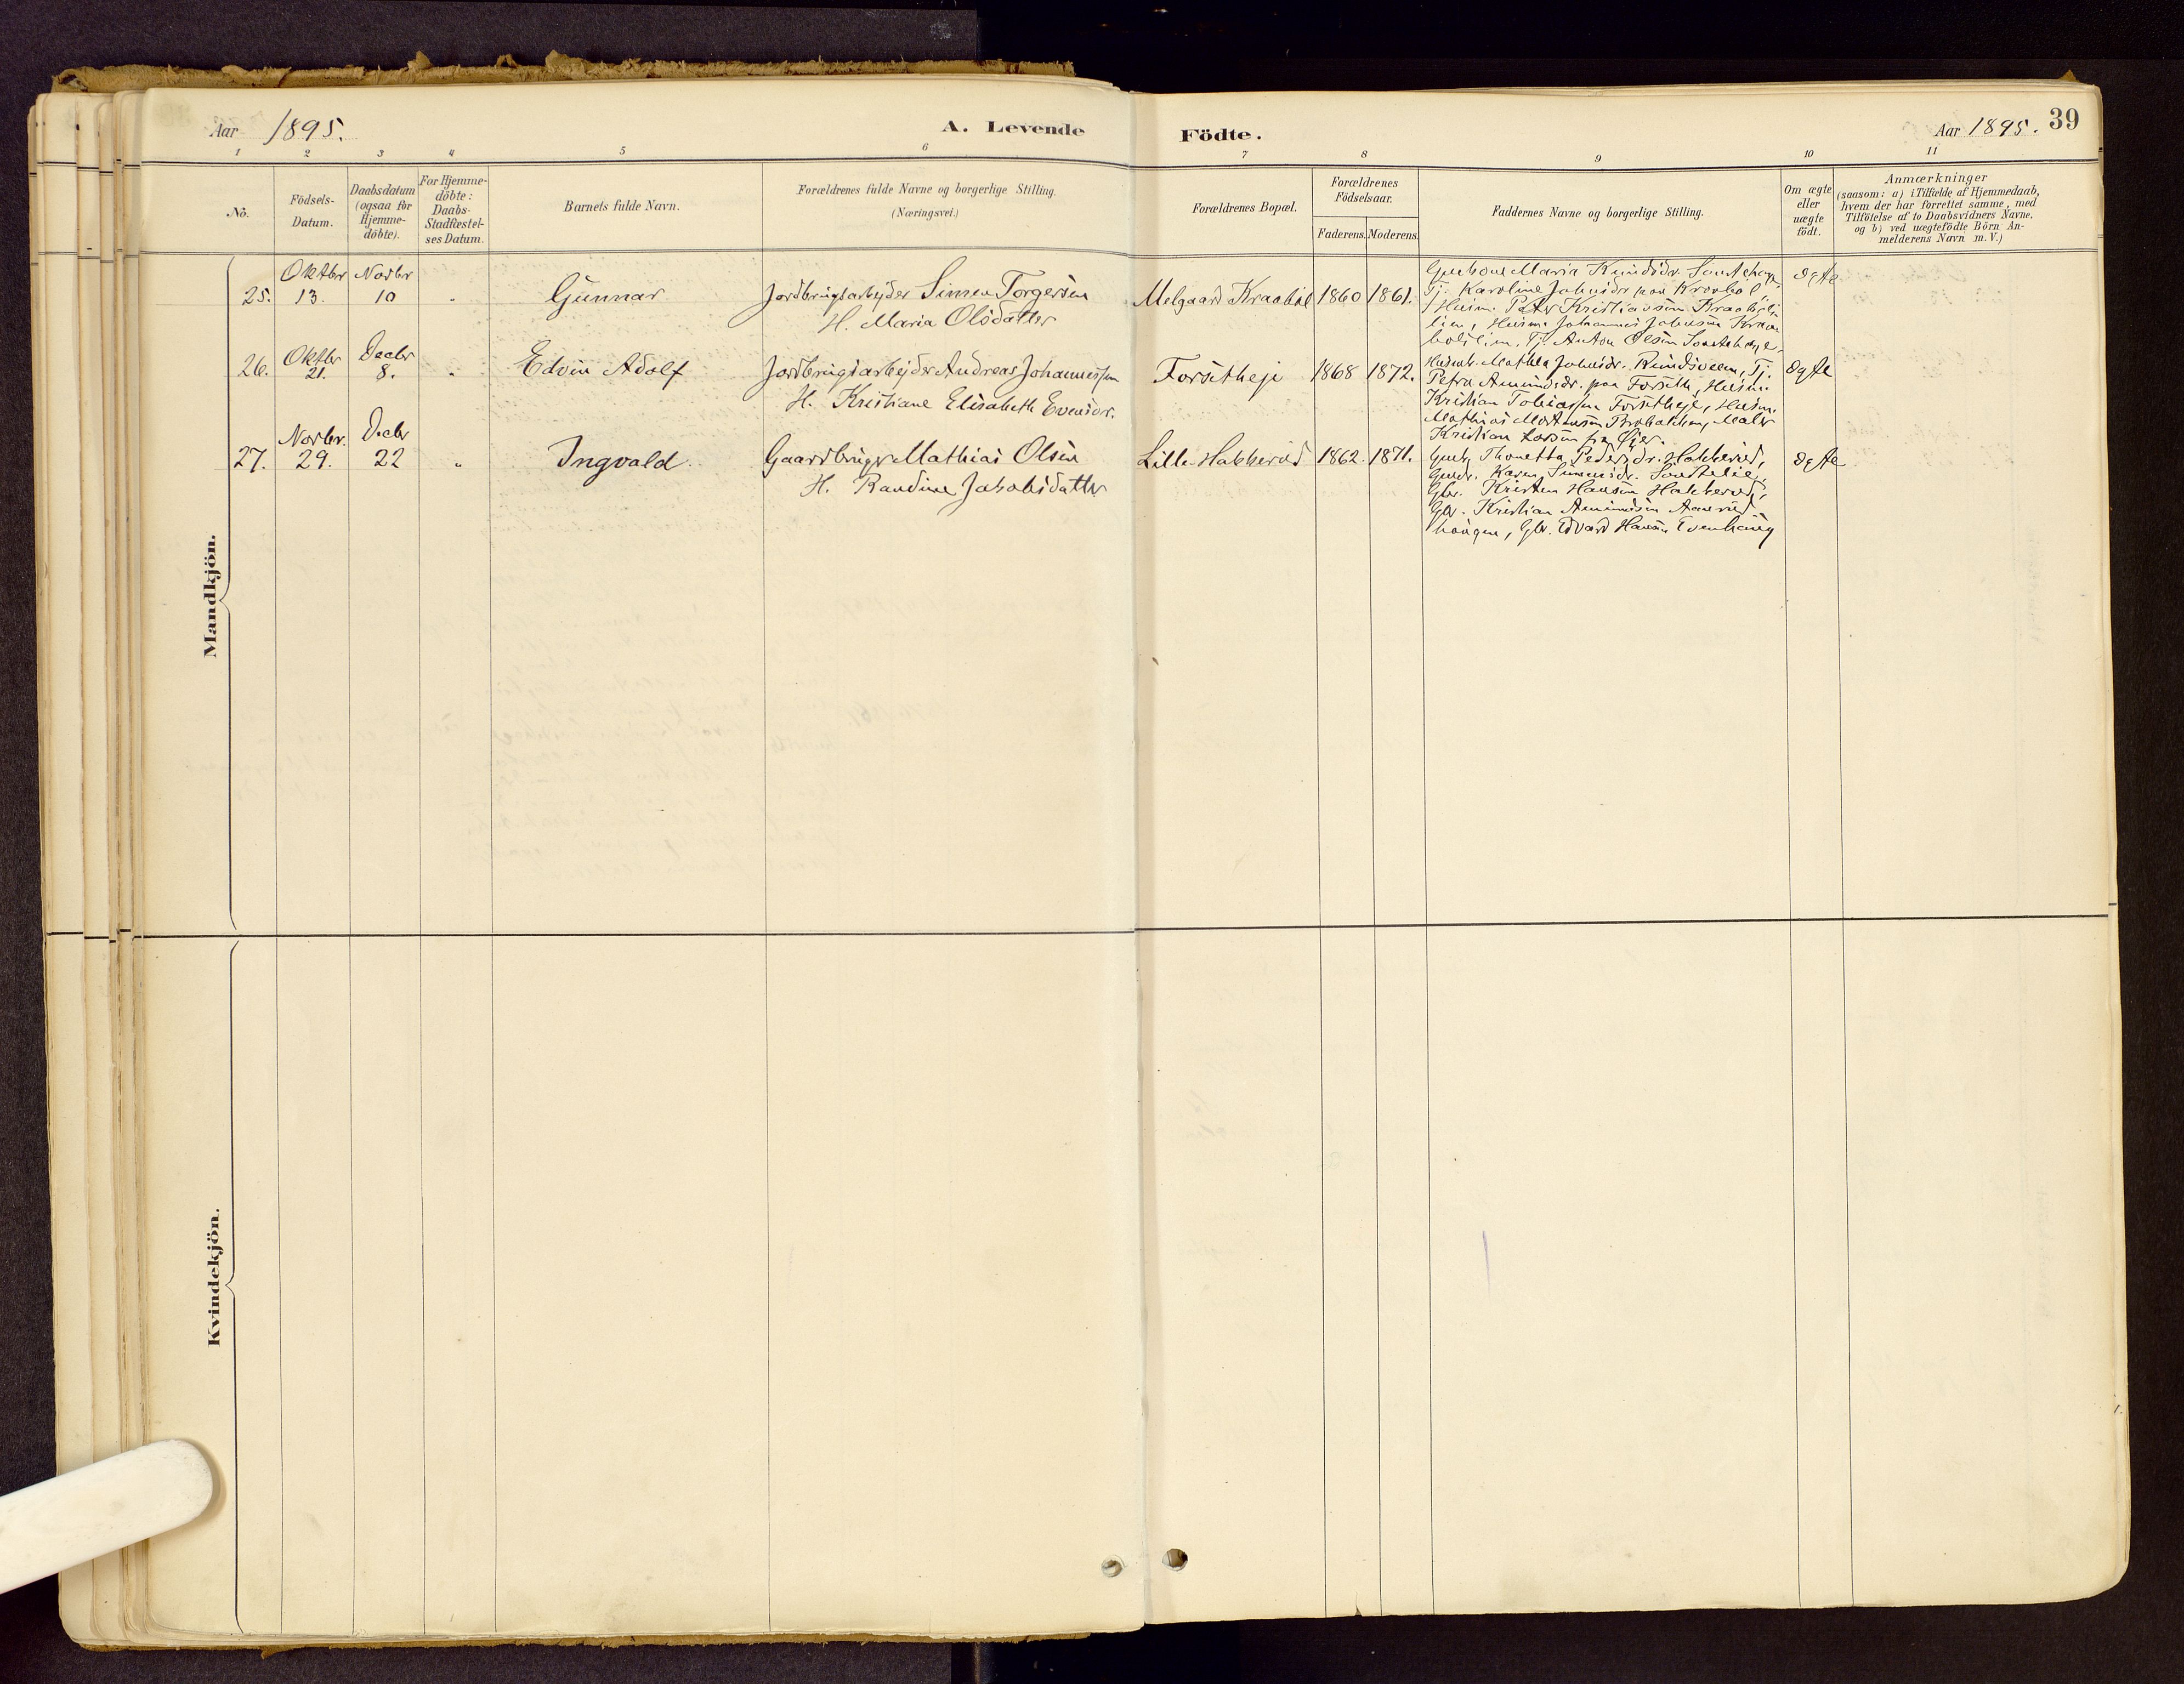 Aar 1895. A. Levende Födte. Aar 1895. 39
1 2 3 4 5 6 7 8 9 10 11
No.
Födsels-
Datum.
Daabsdatum
(ogsaa for
Hjemme-
döbte).
For Hjemme-
döbte:
Daabs-
Stadfæstel-
ses Datum.
Barnets fulde Navn.
Forældrenes fulde Navne og borgerlige Stilling.
(Næringsvei.)
Forældrenes Bopæl.
Forældrenes
Födselsaar.
Faderens. Moderens.
Faddernes Navne og borgerlige Stilling.
Om ægte
eller
uægte
födt.
Anmærkninger
(saasom: a) i Tilfælde af Hjemmedaab,
hvem der har forrettet samme, med
Tilföielse af to Daabsvidners Navne.
og b) ved uægtefödte Börn An-
melderens Navn m. V.)
Mandkjön.
25.
Oktbr
13.
Novbr
10
"
Gunnar
Jordbrugsarbejder Simen Torgersen
H. Maria Olsdatter
Melgaard Kraabøl
1860
1861.
Maria Knudsdr.
Tj. Karoline Johnsdr paa Kraabøl
Husm. Peter Kristiansen Kraabøls-
lien, Husm. Johannes Johnsen Kraa-
bølslien, Tj. Anton Olsen
ægte
26.
Oktbr
21.
Decbr
8.
"
Edvin Adolf
Jordbrugsarbejder Andreas Johannessen
H. Kristiane Elisabeth Evensdr.
Forsetheje
1868
1872.
Mathea Johnsdr. Rundsveen, Tj.
Petra Amundsdr. paa Forseth, Husm.
Kristian Tobiassen Forsetheje, Husm.
Mathias Mortensen Maler
Kristian Larsen fra Øjer.
ægte
27.
Novbr.
29.
Decbr
22
"
Ingvald
Gaardbruger Mathias Olsen
H. Randine Jakobsdatter
Lille-Hakkerud
1862.
1871.
Thonetta Pedersdr. Hakkerud,
Karen Simensdr.
Gbr. Kristen Hansen Hakkerud,
Gbr. Kristian Amundsen
haugen, Gbr. Edvard Hansen Evenhaug
ægte
Kvindekjön.